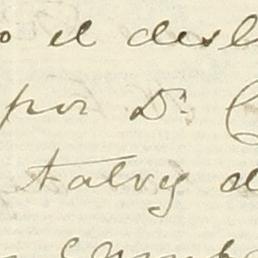 o el desl
por Dn. C
talvez d